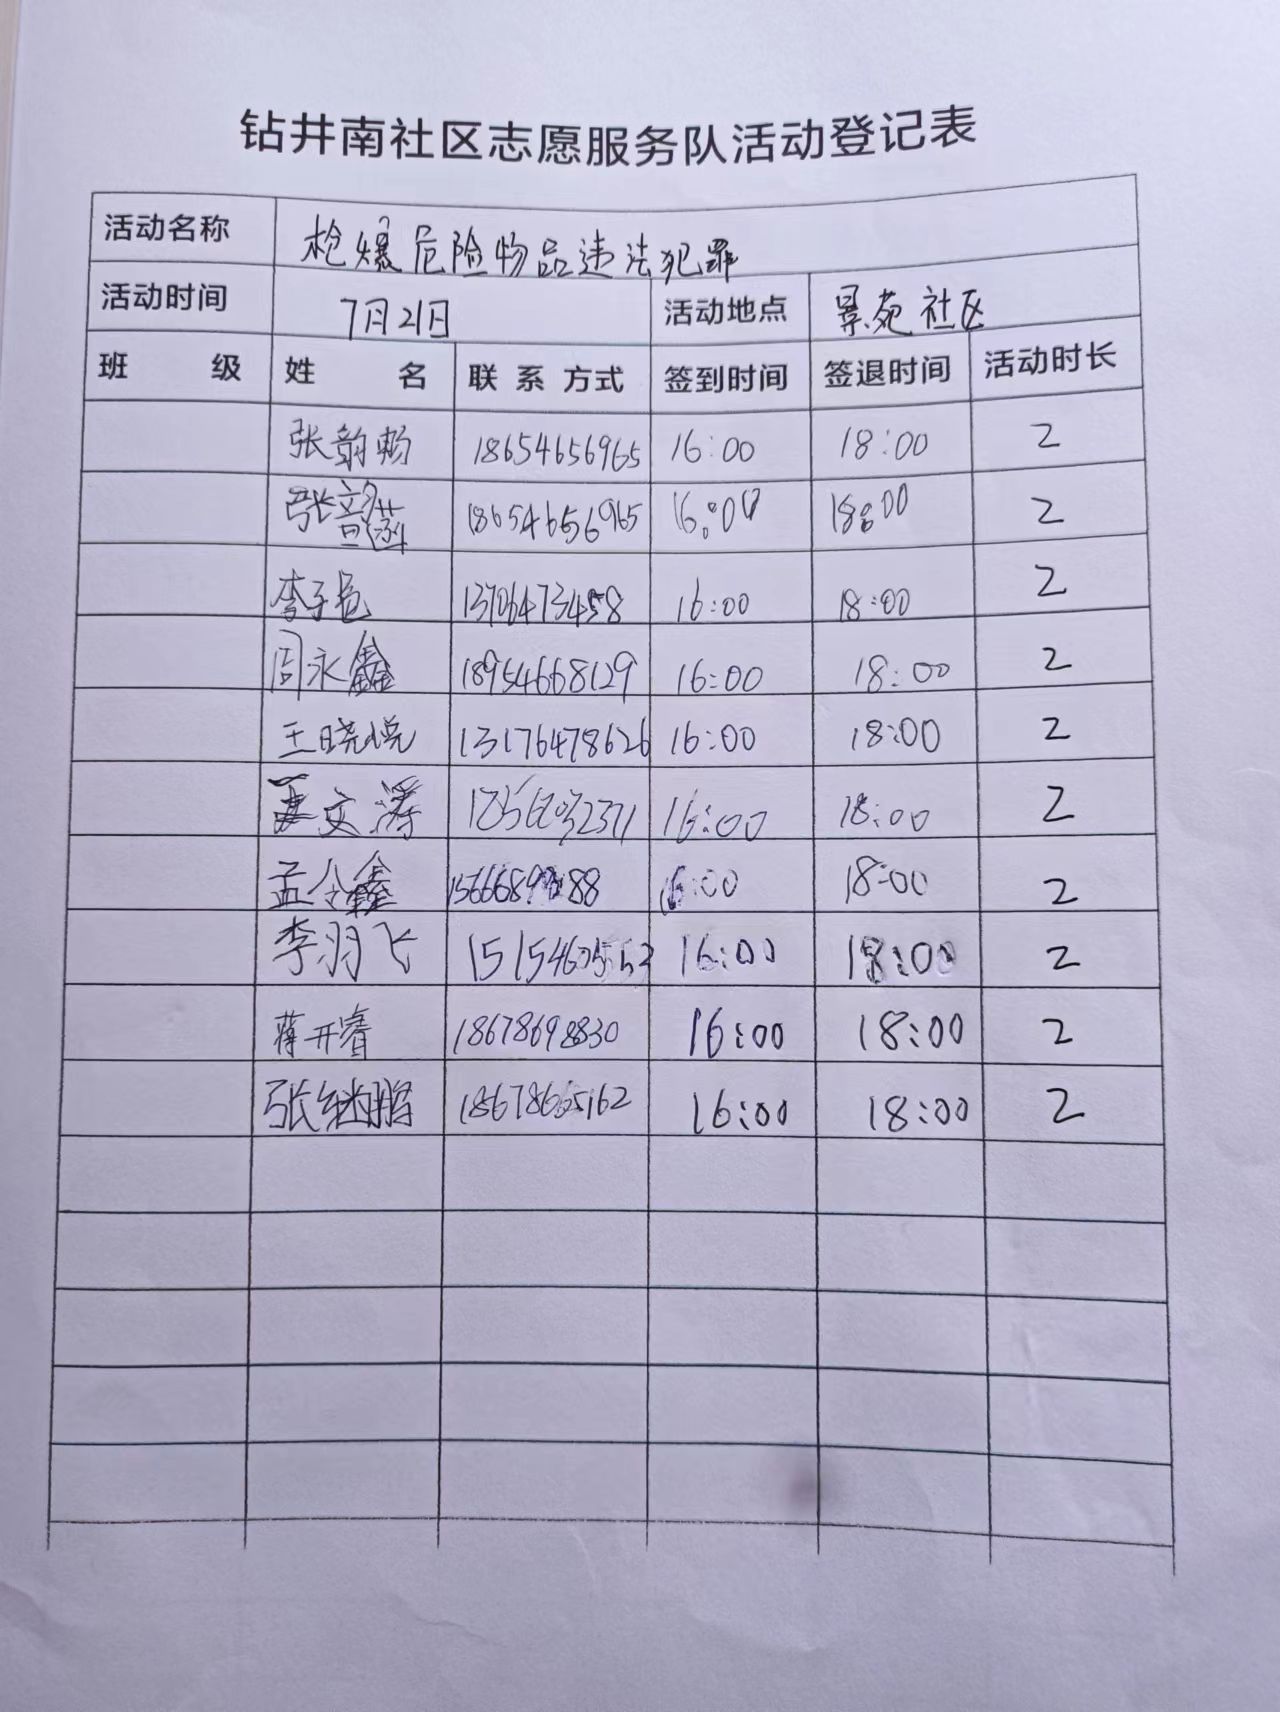 钻井南社区志愿服务队活动登记表
活动名称 枪爆危险物品违法犯罪
活动时间 7月21日 活动地点 景苑社区
班 级 姓 名 联 系 方式 签到时间 签退时间 活动时长
张韵畅 18654656965 16:00 18:00 2
张韵涵 18654656965 16:00 18:00 2
李子 13706473458 16:00 18:00 2
周永鑫 18954668129 16:00 18:00 2
王晓悦 13176478626 16:00 18:00 2
文涛 16:00 18:00 2
孟令鑫 16:00 18:00 2
李羽飞 16:00 18:00 2
蒋开睿 18678698830 16:00 18:00 2
张继鹏 16:00 18:00 2